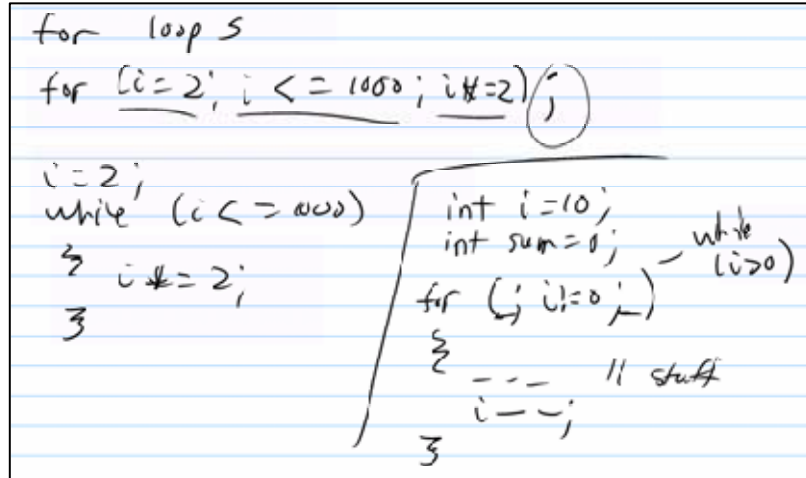 for loops
for (i=2; i <= 1000; i*=2);
i=2;
while (i <= 1000)
{
i*=2;
}
int i=10;
int sum=0;
for (; i!=0;)
while
(i>0)
{
--- // stuff
i--;
}